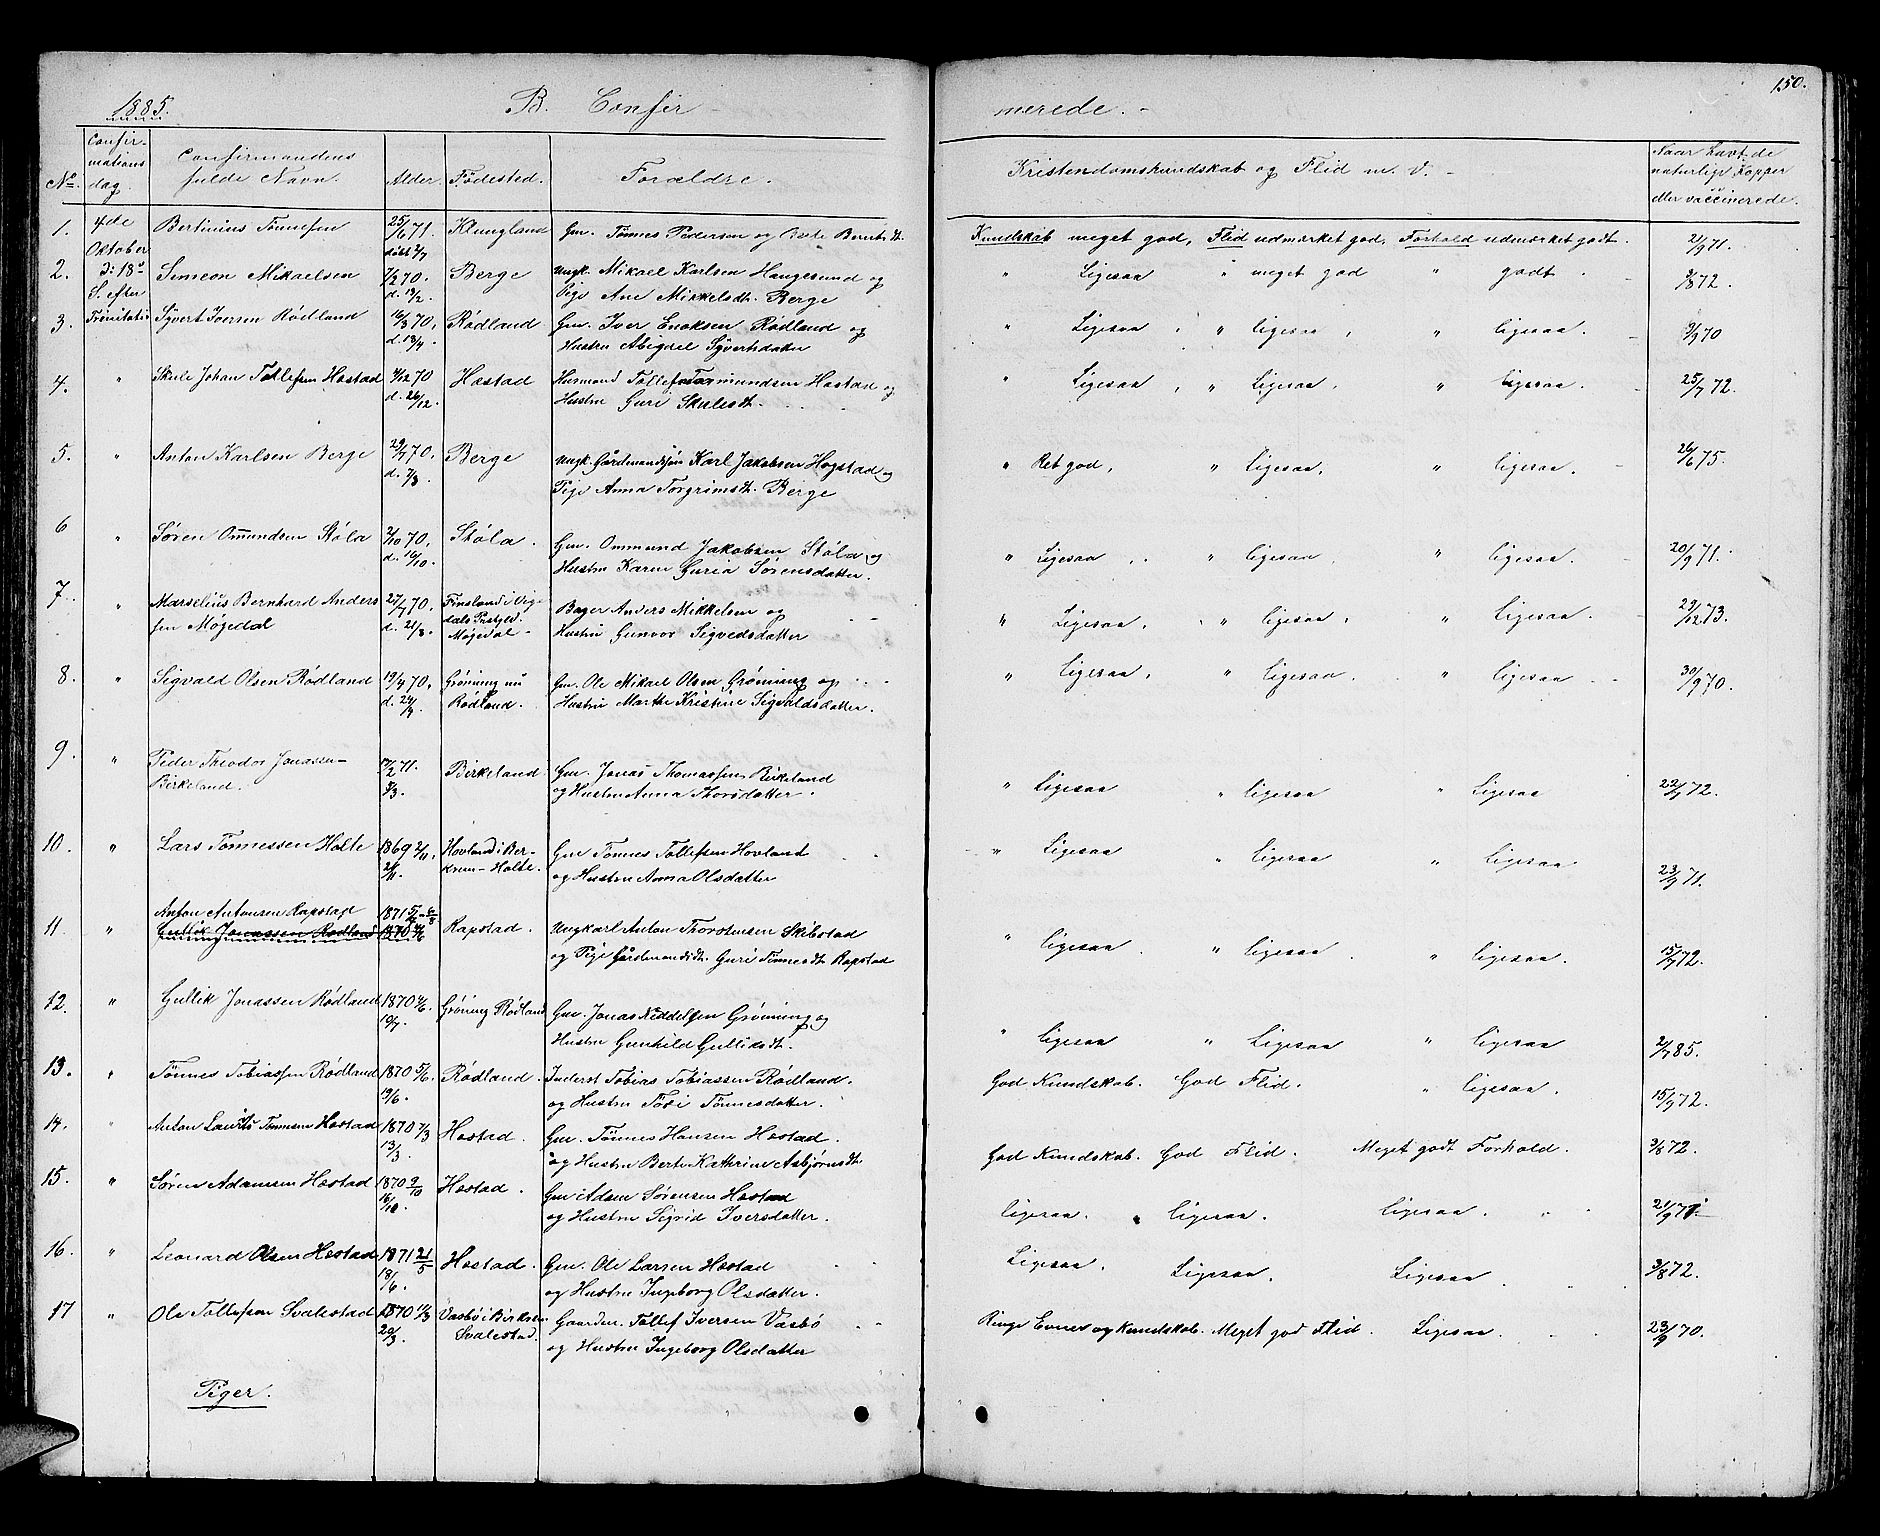 150.
1885. B. Confir - merede. -
No. Confirmationsdag. Confirmandens fulde Navn. Alder. Fødested. Forældre. Kristendomskundskab og Flid m. v. - Naar havt de naturlige Kopper eller vaccinerede.
1. 4de Oktober Bertinius Tønnesen 25/6 71. døbt 2/7 Klungland Gm. Tønnes Pedersen og Berte Berntsdt. Kundskab meget god, Flid udmærket god, Forhold udmærket godt. 21/9 71.
2. d: 18de S. efter Simeon Mikaelsen 7/2 70. d. 13/2. Berge Ungk. Mikael Karlsen Haugesund og " Ligesaa " meget god " godt . 9/8 72.
Pige Ane Mikkelsdt. Berge
3. Trinitatis Syvert Iversen Rødland 16/3 70. d. 13/4 Rødland Gm. Iver Enoksen Rødland og " Ligesaa , " ligesaa , " ligesaa . 9/9 70
Hustru Abigael Syvertsdatter
4. " Skule Johan Tollefsen Hæstad 4/12 70 d. 26/12. Hæstad Husmand Tollef Tormundsen Hæstad og " Ligesaa , " Ligesaa , " Ligesaa . 25/7 72.
Hustru Guri Skulesdt.
5. " Anton Karlsen Berge 29/7 70. d. 7/8. Berge Ungk. Gårdmandssøn Karl Jakobsen Høgstad og " Ret god, " Ligesaa, " ligesaa . 26/6 75.
Pige Anna Torgrimsdt. Berge
6 " Søren Ommundsen Støla 2/10 70. d. 16/10. Støla. Gm. Ommund Jakobsen Støla og " Ligesaa , " ligesaa, " ligesaa . 20/9 71.
Hustru Karen Guria Sørensdatter.
7. " Marselius Bernhard Andersen Møgedal 27/7 70. d. 21/8. Finsland i Vigedals Prstgjeld. Møgedal - Bager Anders Mikkelsen og " Ligesaa , " ligesaa , " Ligesaa . 29/12 73.
Hustru Gunvor Sigvedsdatter
8. " Sigvald Olsen Rødland 19/4 70. d. 24/4. Grøning nu Rødland. Gm. Ole Mikael Olsen Grøning og " ligesaa . " ligesaa . " ligesaa . 30/9 70.
Hustru Marthe Kristine Sigvaldsdatter.
9. " Peder Theodor Jonassen - Birkeland. 17/2 71. 5/3. Birkeland. Gm. Jonas Thomassen Birkeland " Ligesaa " ligesaa " Ligesaa 22/7 72.
og Hustru Anna Thorsdatter .
10. " Lars Tønnessen Holte 1869 2/11. 21/11. Hovland i Berkrem - Holte. Gm Tønnes Tollefsen Hovland " ligesaa " ligesaa " Ligesaa 23/9 71.
og Hustru Anna Olsdatter
11. " Anton Antonsen Rapstad Gullik Jonassen Rødland 1871 5/2 - 6/8 1870 4/6 Rapstad . Ungkarl Anton Thorstensen Skibstad " ligesaa . " ligesaa . " ligesaa . 15/7 72.
og Pige Gårdmandsdt. Guri Tønnesdt. Rapstad
12. " Gullik Jonassen Rødland 1870 4/6. 10/7. Grøning Rødland Gm. Jonas Neddelsen Grøning og " ligesaa " Ligesaa " ligesaa 2/7 85.
Hustru Gunhild Gulliksdt.
13. " Tønnes Tobiassen Rødland 1870 5/6. 19/6. Rødland . Inderst Tobias Tobiassen Rødland. God Kundskab. God Flid. " ligesaa . 15/7 72.
og Hustru Tori Tønnesdatter .
14. " Anton Laurits Tønnesen Hæstad 1870 7/3 13/3. Hæstad . Gm. Tønnes Hansen Hæstad . God Kundskab. God Flid . Meget godt Forhold. 3/8 72.
og Hustru Berte Kathrine Asbjørnsdt.
15. " Søren Adamsen Hæstad 1870 9/10 16/10. Hæstad . Gm Adam Sørensen Hæstad ligesaa . ligesaa . ligesaa . 21/9 71.
og Hustru Sigrid Iversdatter.
16. " Leonard Olsen Hæstad 1871 21/5 18/6. Hæstad . Gm. Ole Larsen Hæstad Ligesaa . Ligesaa . Ligesaa . 3/8 72.
og Hustru Ingeborg Olsdatter.
17 " Ole Tollefsen Svalestad 1870 11/3 20/3. Vasbø i Birkrem Svalestad. Gaardm. Tollef Iversen Vasbø Ringe Evner og Kundskab. Meget god Flid . Ligesaa . 23/9 70.
og Hustru Ingeborg Olsdatter
Piger.